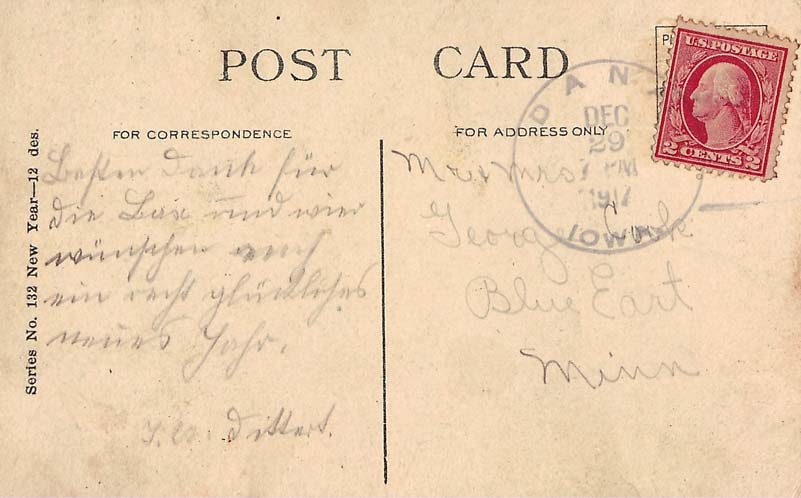 POST CARD
FOR CORRESPONDENCE
FOR ADDRESS ONLY
Series No. 132 New Year—12 des.
Besten Dank für
die Bax und wier
wünschen euch
ein recht glückliches
neues Jahr.
Dittert.
U.S. POSTAGE
2 CENTS 2
DAN
DEC
29
PM
1917
IOWA
Mr & Mrs
George Cook
Blue Eart
Minn